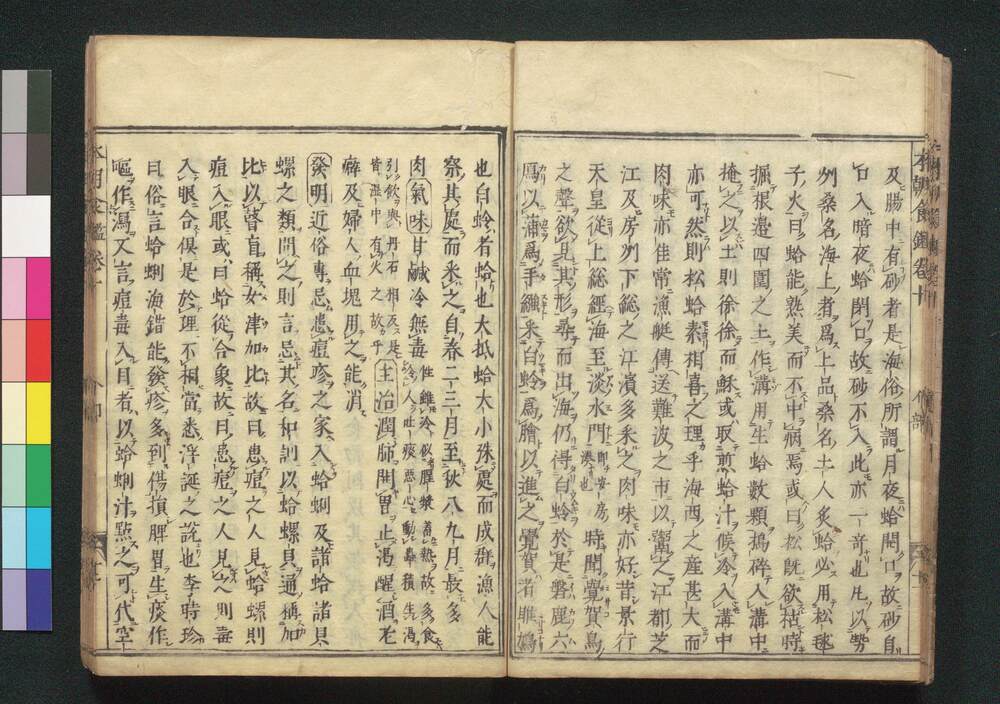 本朝食鑑卷十
及腸中有砂者是海俗所謂月夜蛤開口故砂自
口入暗夜蛤閉口故砂不入此亦一奇也凡以勢
州桑名海上者爲上品桑名土人炙蛤必用松毬
子火曰蛤能熟美而不中病焉或曰松既欲枯時
掘根邊四圍之土作溝用生蛤數顆搗碎入溝中
掩之以土則徐徐而蘇或取煎蛤汁候冷入溝中
亦可然則松蛤素相喜之理乎海西之産甚大而
肉味亦佳常漁艇傳送難波之市以鬻之江都芝
江及房州下總之江濱多采之肉味亦好昔景行
天皇從上總經海至淡水門即安房湊也時聞覺賀鳥
之聲欲見其形尋而出海仍得白蛤於是磐鹿六
鴈以蒲爲手繦釆白蛤爲膾以進之覺賀者雎鳩
也白蛤者蛤也大抵蛤大小殊處而成群漁人能
察其處而釆之自春二三月至秋八九月最多
肉氣味甘鹹冷無毒
主治潤肺開胃止渴醒酒老
癖及婦人血塊用之能消
發明近俗專忌患痘疹之家入蛤蜊及諸蛤諸貝
螺之類問之則言忌其名和訓以蛤螺貝通稱加
比以瞽盲稱女津加比故曰患痘之人見蛤螺則
痘入眼或曰蛤從合象故曰患痘之人見之則毒
入眼合俱是於理不相當悉浮誕之說也李時珍
曰俗言蛤蜊海錯能發疹多到傷損脾胃生痰作
嘔作瀉又言痘毒入目者以蛤蜊汁點之可代空